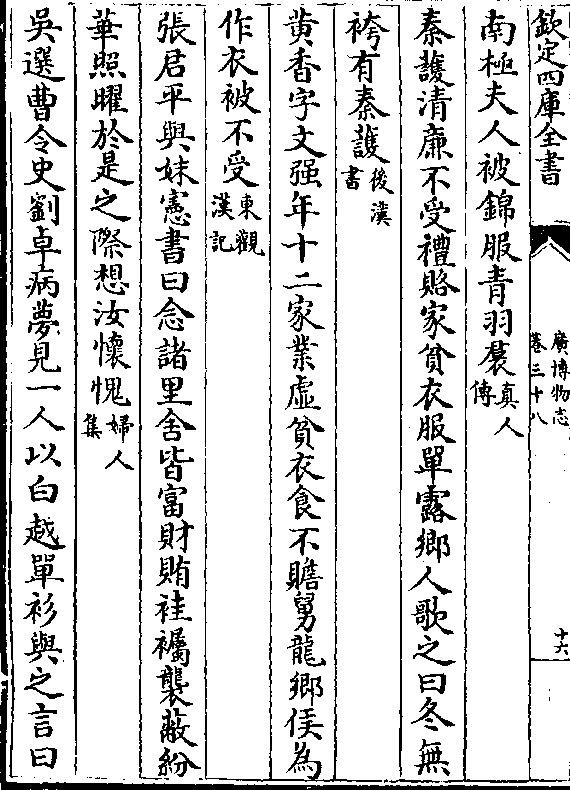 欽定四庫全書
廣博物志
卷三十八
十六
南極夫人被錦服青羽裠真人傳
秦護清亷不受禮賂家貧衣服單露鄉人歌之曰冬無
袴有秦護後漢書
黄香字文强年十二家業虚貧衣食不贍舅龍鄉侯為
作衣被不受東觀漢記
張君平與妹憲書曰念諸里舍皆富財賄袿襡襲蔽紛
華照曜於是之際想汝懷愧婦人集
吳選曹令史劉卓病夢見一人以白越單衫與之言曰